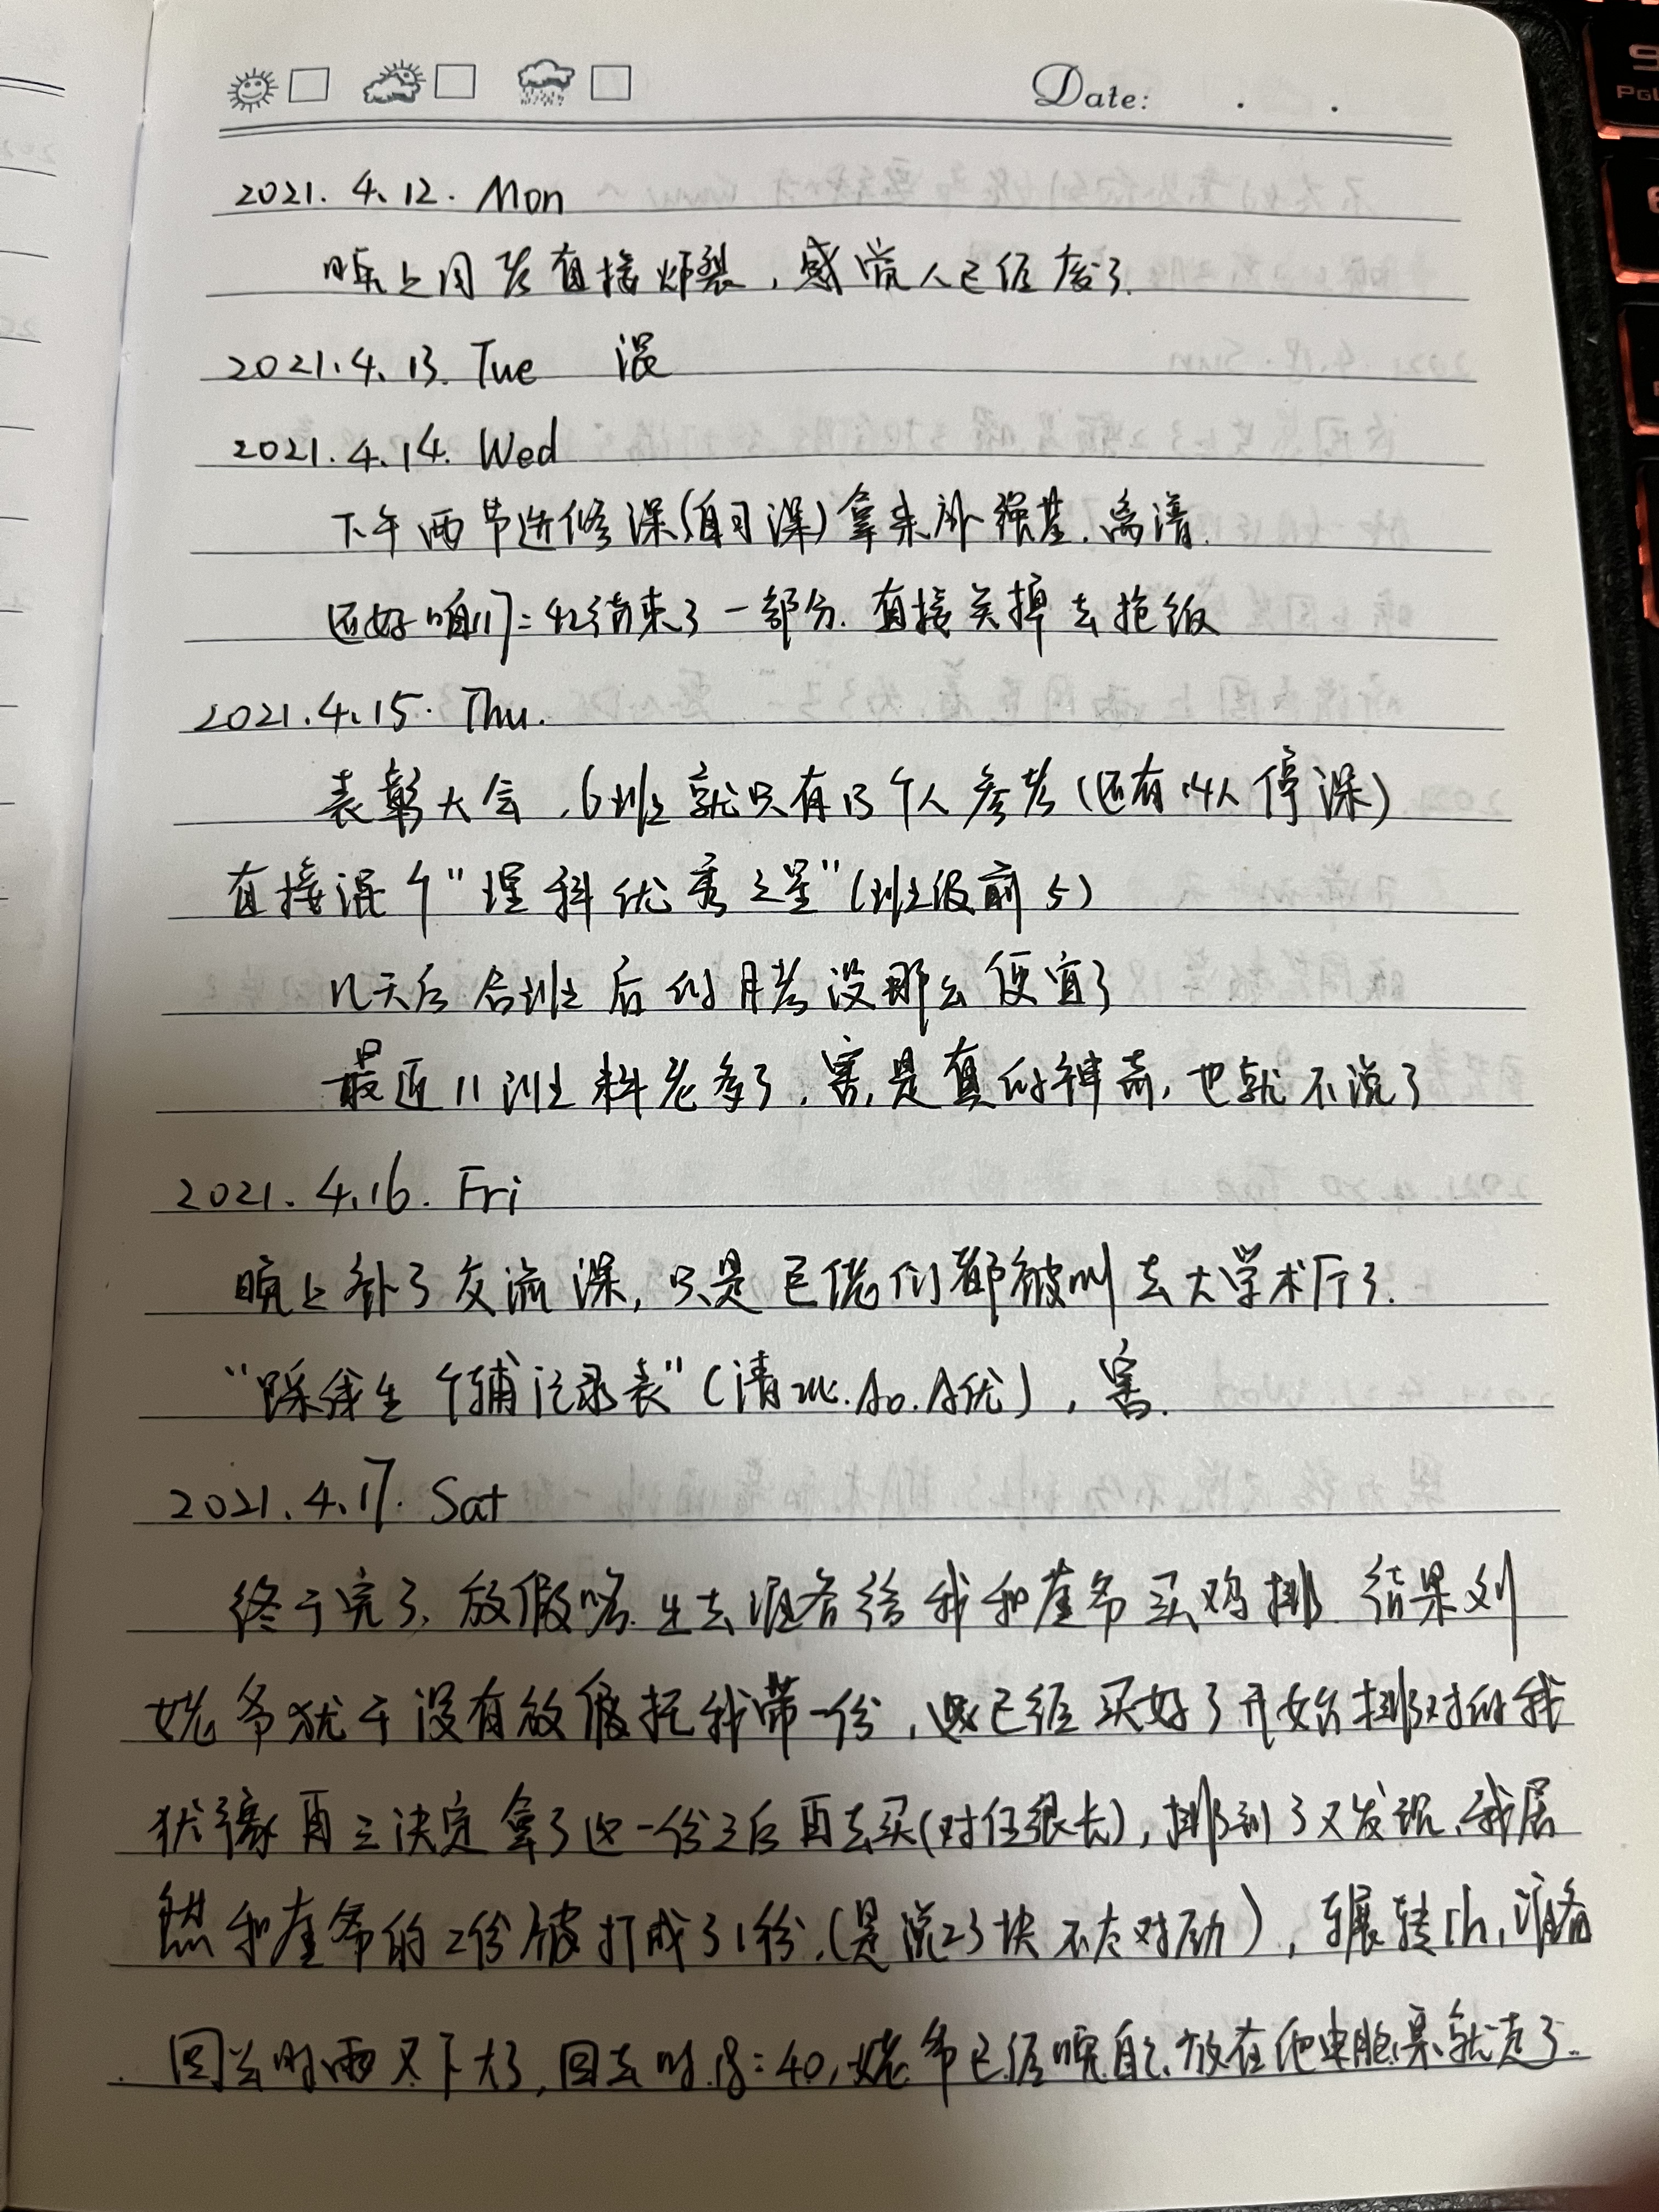 Date: . .
2021.4.12. Mon
晚上周考直接炸裂，感觉人已经废了.
2021.4.13. Tue 混
2021.4.14. Wed
下午两节进修课(自习课)拿来补强基.离谱.
还好咱们:42结束了一部分.直接关掉去抢饭
2021.4.15. Thu.
表彰大会,6班就只有13个人参考(还有14人停课)
直接混个"理科优秀之星"(班级前5)
几天后合班后的月考没那么便宜了
最近11班料老多了,害,是真的神奇,也就不说了
2021.4.16. Fri
晚上补了交流课,只是巨佬们都被叫去大学术厅了.
"踩线生个辅记录表"(清北.A0.A优),害.
2021.4.17. Sat
终于完了,放假咯.出去准备给我和崔爷买鸡排.结果刘
姥爷犹于没有放假托我带一份,已经买好了开始排队的我
犹豫再三决定拿了这一份之后再去买(对伍很长),排到了又发现,我居
然和崔爷的2份被打成了1份,(是说23块不太对劲),辗转1h,准备
回去时雨又下大了,回去时18:40,姥爷已经晚自,放在他电脑桌就走了.